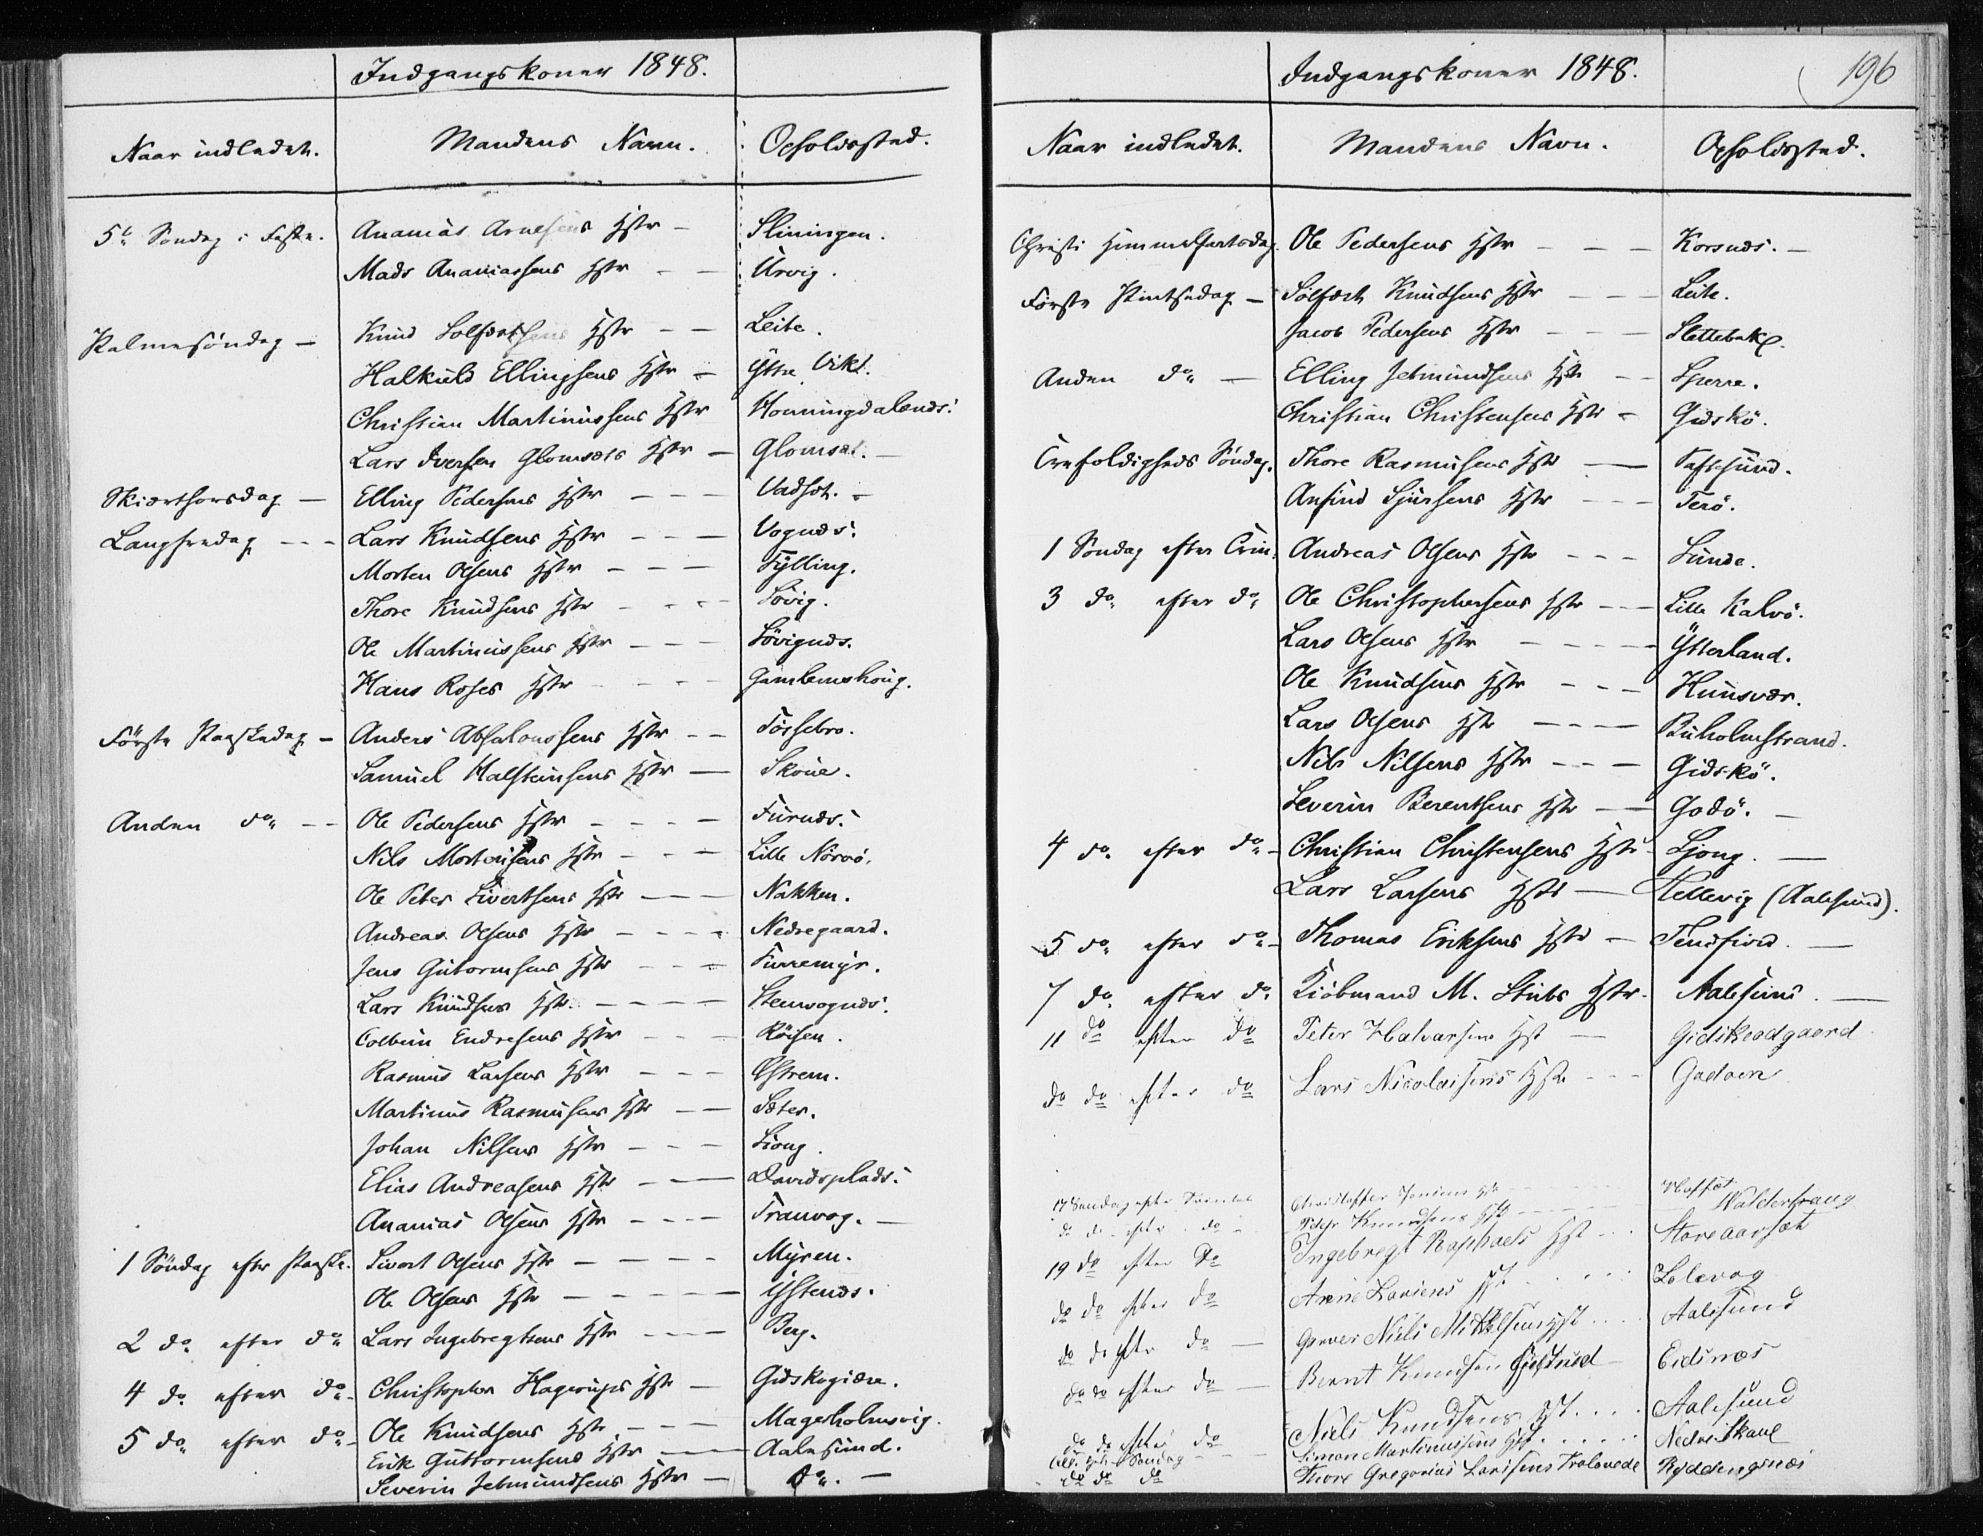 Indgangskoner 1848.
Naar indledet. Mandens Navn. Opholdssted.
5te Søndag i Faste. Ananias Arnesens Hstr — Sliningen.
Mads Ananiassens Hstr — — Urvig.
Palmesøndag — Knud Solfæstsens Hstr — — Leite.
Halkield Ellingsens Hstr — Ytre Vikt.
Christian Martinussens Hstr Honningdalsnes.
Lars Iversen Glomsets Hstr — Glomset. —
Skiærthorsdag — Elling Pedersens Hstr — — — Vadset. —
Langfredag — — — Lars Knudsens Hstr — — — Vognæs.
Morten Olsens Hstr — — — Fylling.
Thore Knudsens Hstr — — — Løvig.
Ole Martinussens Hstr — — — Løvignæs.
Hans Roses Hstr — — — Gamlemshoug.
Første Paaskedag — Anders Absalonssens Hstr — — Fossebro.
Samuel Halsteinsens Hstr — Skoue.
Anden do — — Ole Pedersens Hstr — — — — Furnæs.
Nils Mortensens Hstr — — — Lille Nørvø.
Ole Peter Sivertsens Hstr — — — Nakken.
Andreas Olsens Hstr — — — — Nedregaard.
Jens Gutormsens Hstr — — — Furremyr.
Lars Knudsens Hstr. — — — — Stensognæs.
Colbein Endresens Hstr — — — Røisen.
Rasmus Larsens Hstr — — — Ystrem.
Martinus Rasmusens Hstr — — Sæter.
Johan Nilsens Hstr — — — Liong.
Elias Andreasens Hstr — — — Davidsplads.
Ananias Olsens Hstr — — — Franvog. —
1 Søndag efter Paaske. Sivert Olsens Hstr — — — — Myren.
Ole Olsens Hstr — — — — — Ystenæs.
2 do efter do Lars Ingebregtsens Hstr — — — Berg.
4 do efter do — Christopher Hagerups Hstr — Gidskegiære.
5 do efter do — Ole Knudsens Hstr — — — Magerholmsvig.
Erik Guttormsens Hstr — — Aalesund.
Severin Jetmundsens Hstr — do. —
Indgangskoner 1848. 196
Naar indledet. Mandens Navn. Opholdssted.
Christi Himmelfartsdag. Ole Pedersens Hstr — — — Korsnæs. —
Første Pintsedag — Solfæst Knudsens Hstr — — — Leite.
Jacob Pedersens Hstr — — — Slettebak.
Anden do — Elling Jetmundsens Hstr — — Sperre.
Christian Christensens Hstr — Gidskø.
Trefoldigheds Søndag. Thore Rasmusens Hstr — Taftesund.
Anfind Sjursens Hstr — — — Terø.
1 Søndag efter Trin. Andreas Olsens Hstr — — — Sunde.
3 do efter do Ole Christophersens Hstr — — Lille Kalvø.
Lars Olsens Hstr — — — — Ytterland.
Ole Knudsens Hstr — — — Hunsvær.
Lars Olsens Hstr — — — — Buholmstrand.
Nils Nilsens Hstr — — — Gidskø.
Severin Berentsens Hstr — Godø. —
4 do efter do — Christian Christensens Hstr Ljong. —
Lars Larsens Hstr — Hellevig (Aalesund).
5 do efter do — Thomas Eriksens Hstr — Tennfiord. —
7 do efter do Kiøbmand M. Stubs Hstr. Aalesund. —
11 do efter do Peter Halvarsens Hst — Gidskeødgaard
do do efter do Lars Nicolaisens Hstr — — Godøen
17 Søndag efter Trinitat Christopher Hst
do do efter do Peder Knudsens Hst Walderhaug
19 do efter do Ingebregt Raphaels Hst Storeaarsæt
do do efter do Arne Larsens Hst Lolevog
do do efter do Garver Niels Mikkelsens Hst Aalesund
do do efter do — Bernt Knudsen Eidsnæs
do do efter do Niels Knudsens Hst Aalesund
Søndag Simon Martinussens Hst Nedre Skoue
do do do Thore Gregorius Larssens Ryddingsnæs